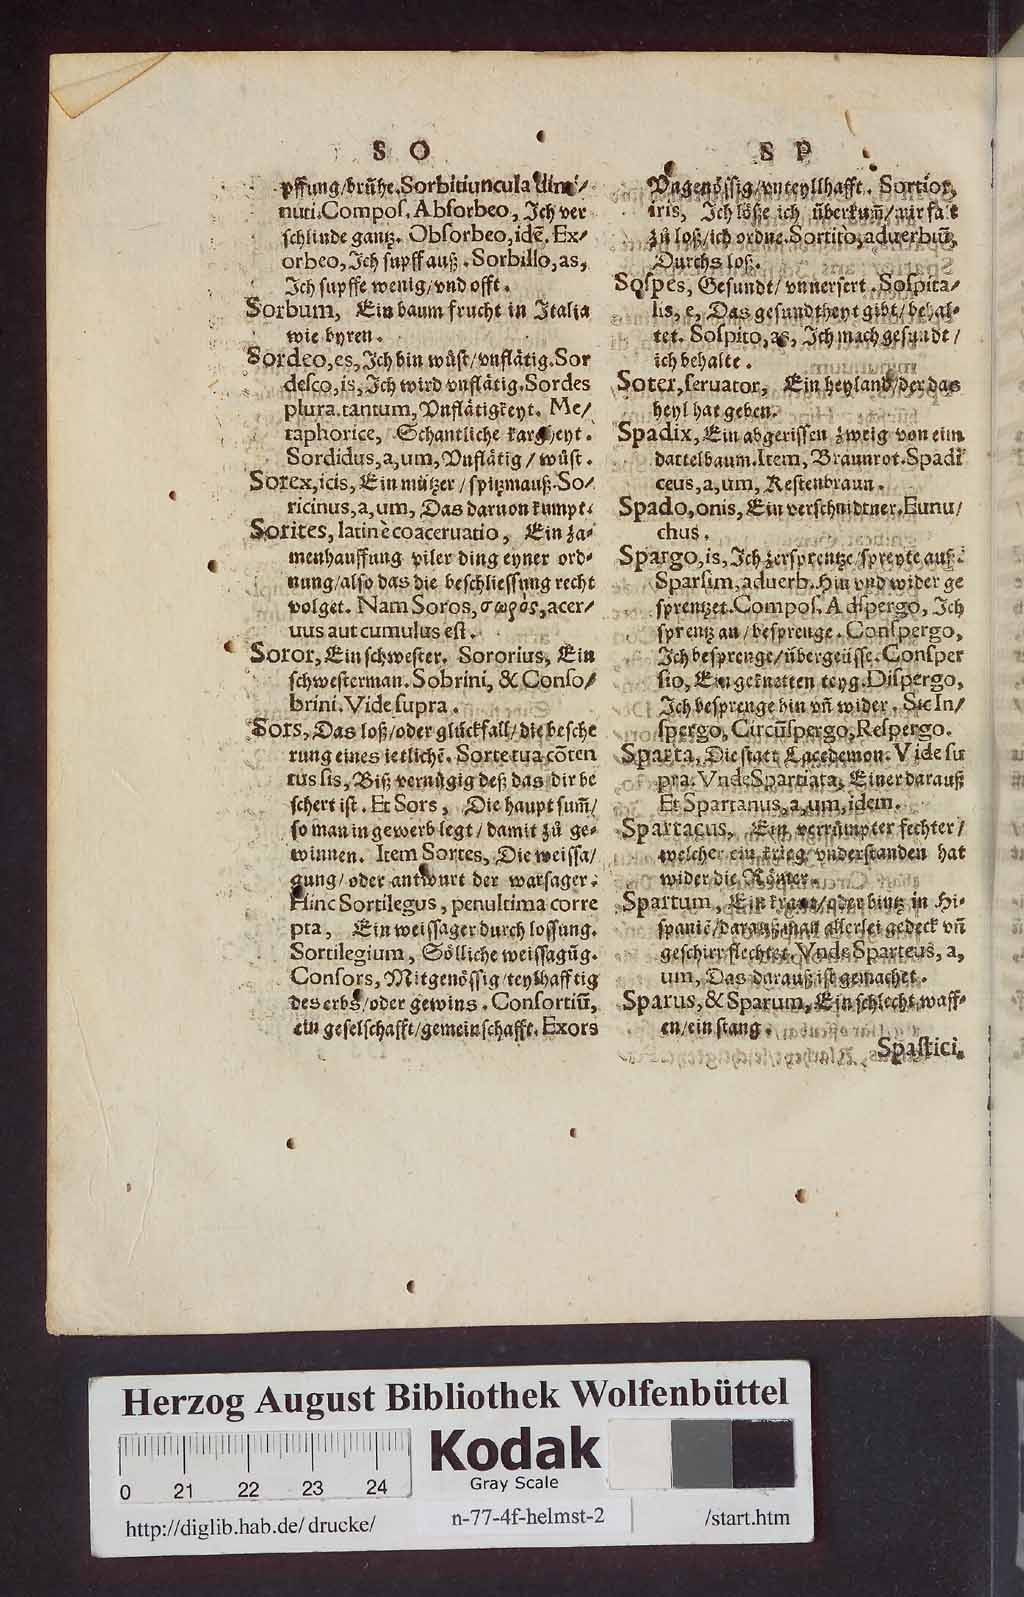 S O
pffung/brühe. Sorbitiuncula dimi⸗
nuti. Compoſ. Abſorbeo, Ich ver
ſchlinde gantz. Obſorbeo, idẽ. Ex⸗
orbeo, Ich ſupff auß. Sorbillo, as,
Ich ſupffe wenig/vnd offt.
Sorbum, Ein baum frucht in Italia
wie byren.
Sordeo, es, Ich bin wüſt/vnflätig. Sor
deſco, is, Ich wird vnflätig. Sordes
plura. tantum, Vnflätigkeyt. Me⸗
taphorice, Schantliche kargheyt.
Sordidus, a, um, Vnflätig/wüſt.
Sorex, icis, Ein mützer/ſpitzmauß. So⸗
ricinus, a, um, Das daruon kumpt.
Sorites, latinè coaceruatio, Ein za⸗
menhauffung viler ding eyner ord⸗
nung/alſo das die beſchlieſſung recht
volget. Nam Soros, σωρὸς, acer⸗
uus aut cumulus eſt.
Soror, Ein ſchweſter. Sororius, Ein
ſchweſterman. Sobrini, & Conſo⸗
brini. Vide ſupra.
Sors, Das loß/oder glückfall/die beſche
rung eines ietlichẽ. Sorte tua cõten
tus ſis, Biß vernügig deß das dir be
ſchert iſt. Et Sors, Die haupt ſum̃/
ſo man in gewerb legt/damit zů ge⸗
winnen. Item Sortes, Die weiſſa⸗
gung/oder antwurt der warſager.
Hinc Sortilegus, penultima corre
pta, Ein weiſſager durch loſſung.
Sortilegium, Sölliche weiſſagũg.
Conſors, Mitgenöſſig/teylhafftig
des erbs/oder gewins. Conſortiũ,
ein geſelſchafft/gemeinſchafft. Exors
S P
Vngenöſſig/vnteyllhafft. Sortior,
iris, Ich löße ich überkum̃/mir falt
zů loß/ich ordne. Sortitò, aduerbiũ,
Durchs loß.
Soſpes, Geſundt/vnuerſert. Soſpita⸗
lis, e, Das geſundtheyt gibt/behal⸗
tet. Soſpito, as, Ich mach geſundt/
ich behalte.
Soter, ſeruator, Ein heyland/der das
heyl hat geben.
Spadix, Ein abgeriſſen zweig von eim
dattelbaum. Item, Braunrot. Spadi
ceus, a, um, Keſtenbraun.
Spado, onis, Ein verſchnidtner. Eunu⸗
chus.
Spargo, is, Ich zerſprentze/ſpreyte auß.
Sparſim, aduerb. Hin vnd wider ge
ſprentzet. Compoſ. Adſpergo, Ich
ſprentz an/beſprenge. Conſpergo,
Ich beſprenge/übergeüſſe. Conſper
ſio, Ein geknetten teyg. Diſpergo,
Ich beſprenge hin vñ wider. Sic In⸗
ſpergo, Circũſpergo, Reſpergo.
Sparta, Die ſtatt Lacedemon. Vide ſu
pra. Vnde Spartiata, Einer darauß
Et Spartanus, a, um, idem.
Spartacus, Ein verrümpter fechter/
welcher ein krieg vnderſtanden hat
wider die Römer.
Spartum, Ein kraut/oder bintz in Hi⸗
ſpaniẽ/darauß man allerlei gedeck vñ
geſchirr flechtet. Vnde Sparteus, a,
um, Das darauß iſt gemachet.
Sparus, & Sparum, Ein ſchlecht waff⸗
en/ein ſtang.
Spaſtici,
Herzog August Bibliothek Wolfenbüttel
Kodak
Gray Scale
0 21 22 23 24
http://diglib.hab.de/drucke/ n-77-4f-helmst-2 /start.htm